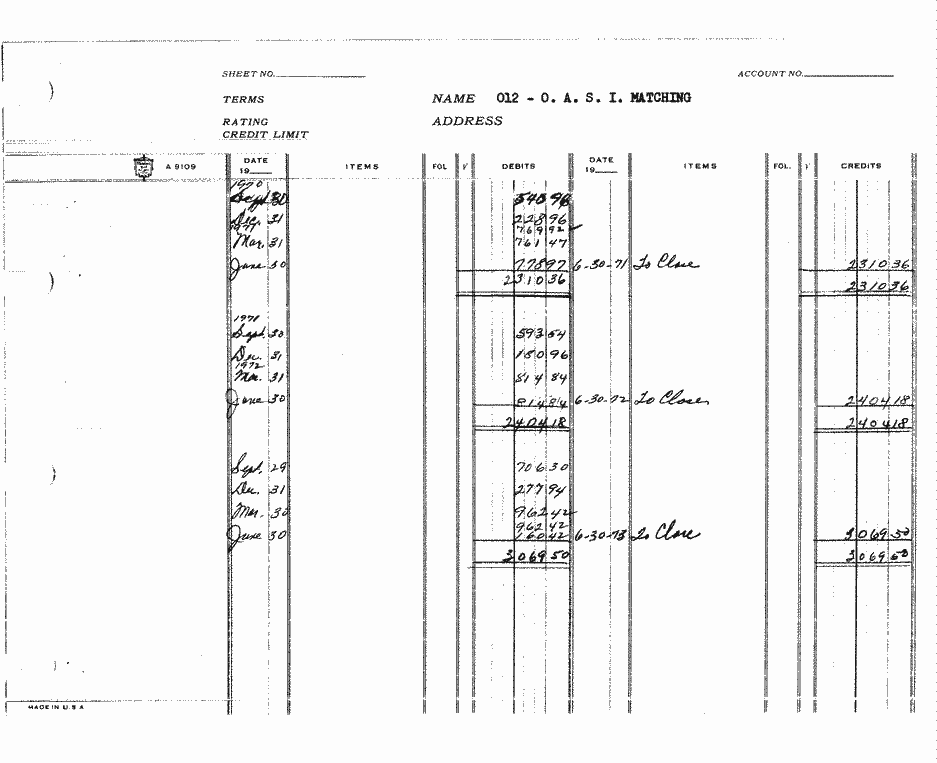 SHEET NO. ACCOUNT NO.
TERMS NAME 012 - O. A. S. I. MATCHING
RATING ADDRESS
CREDIT LIMIT
A 9109 DATE 19 ITEMS FOL √ DEBITS DATE 19 ITEMS FOL. √ CREDITS
1970
Sept. 30 540 96
Dec. 31 228 96
1971 769 92
Mar. 31 761 47
June 30 778 97 6-30-71 To Close 2310 36
2310 36 2310 36
1971
Sept. 30 593 54
Dec. 31 180 96
1972
Mar. 31 814 84
June 30 814 84 6-30-72 To Close 2404 18
2404 18 2404 18
Sept. 29 706 30
Dec. 31 277 94
Mar. 30 962 42
962 42
June 30 160 42 6-30-73 To Close 3069 50
3069 50 3069 50
MADE IN U.S.A